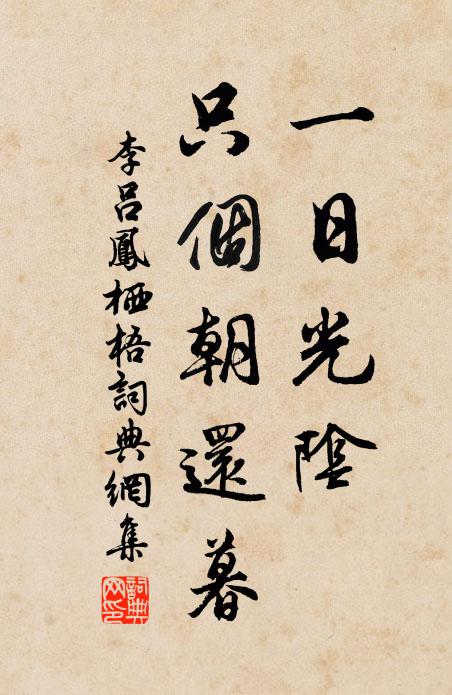 一日光陰
只個朝還暮
李呂鳳栖梧詞典網集
詞典網印